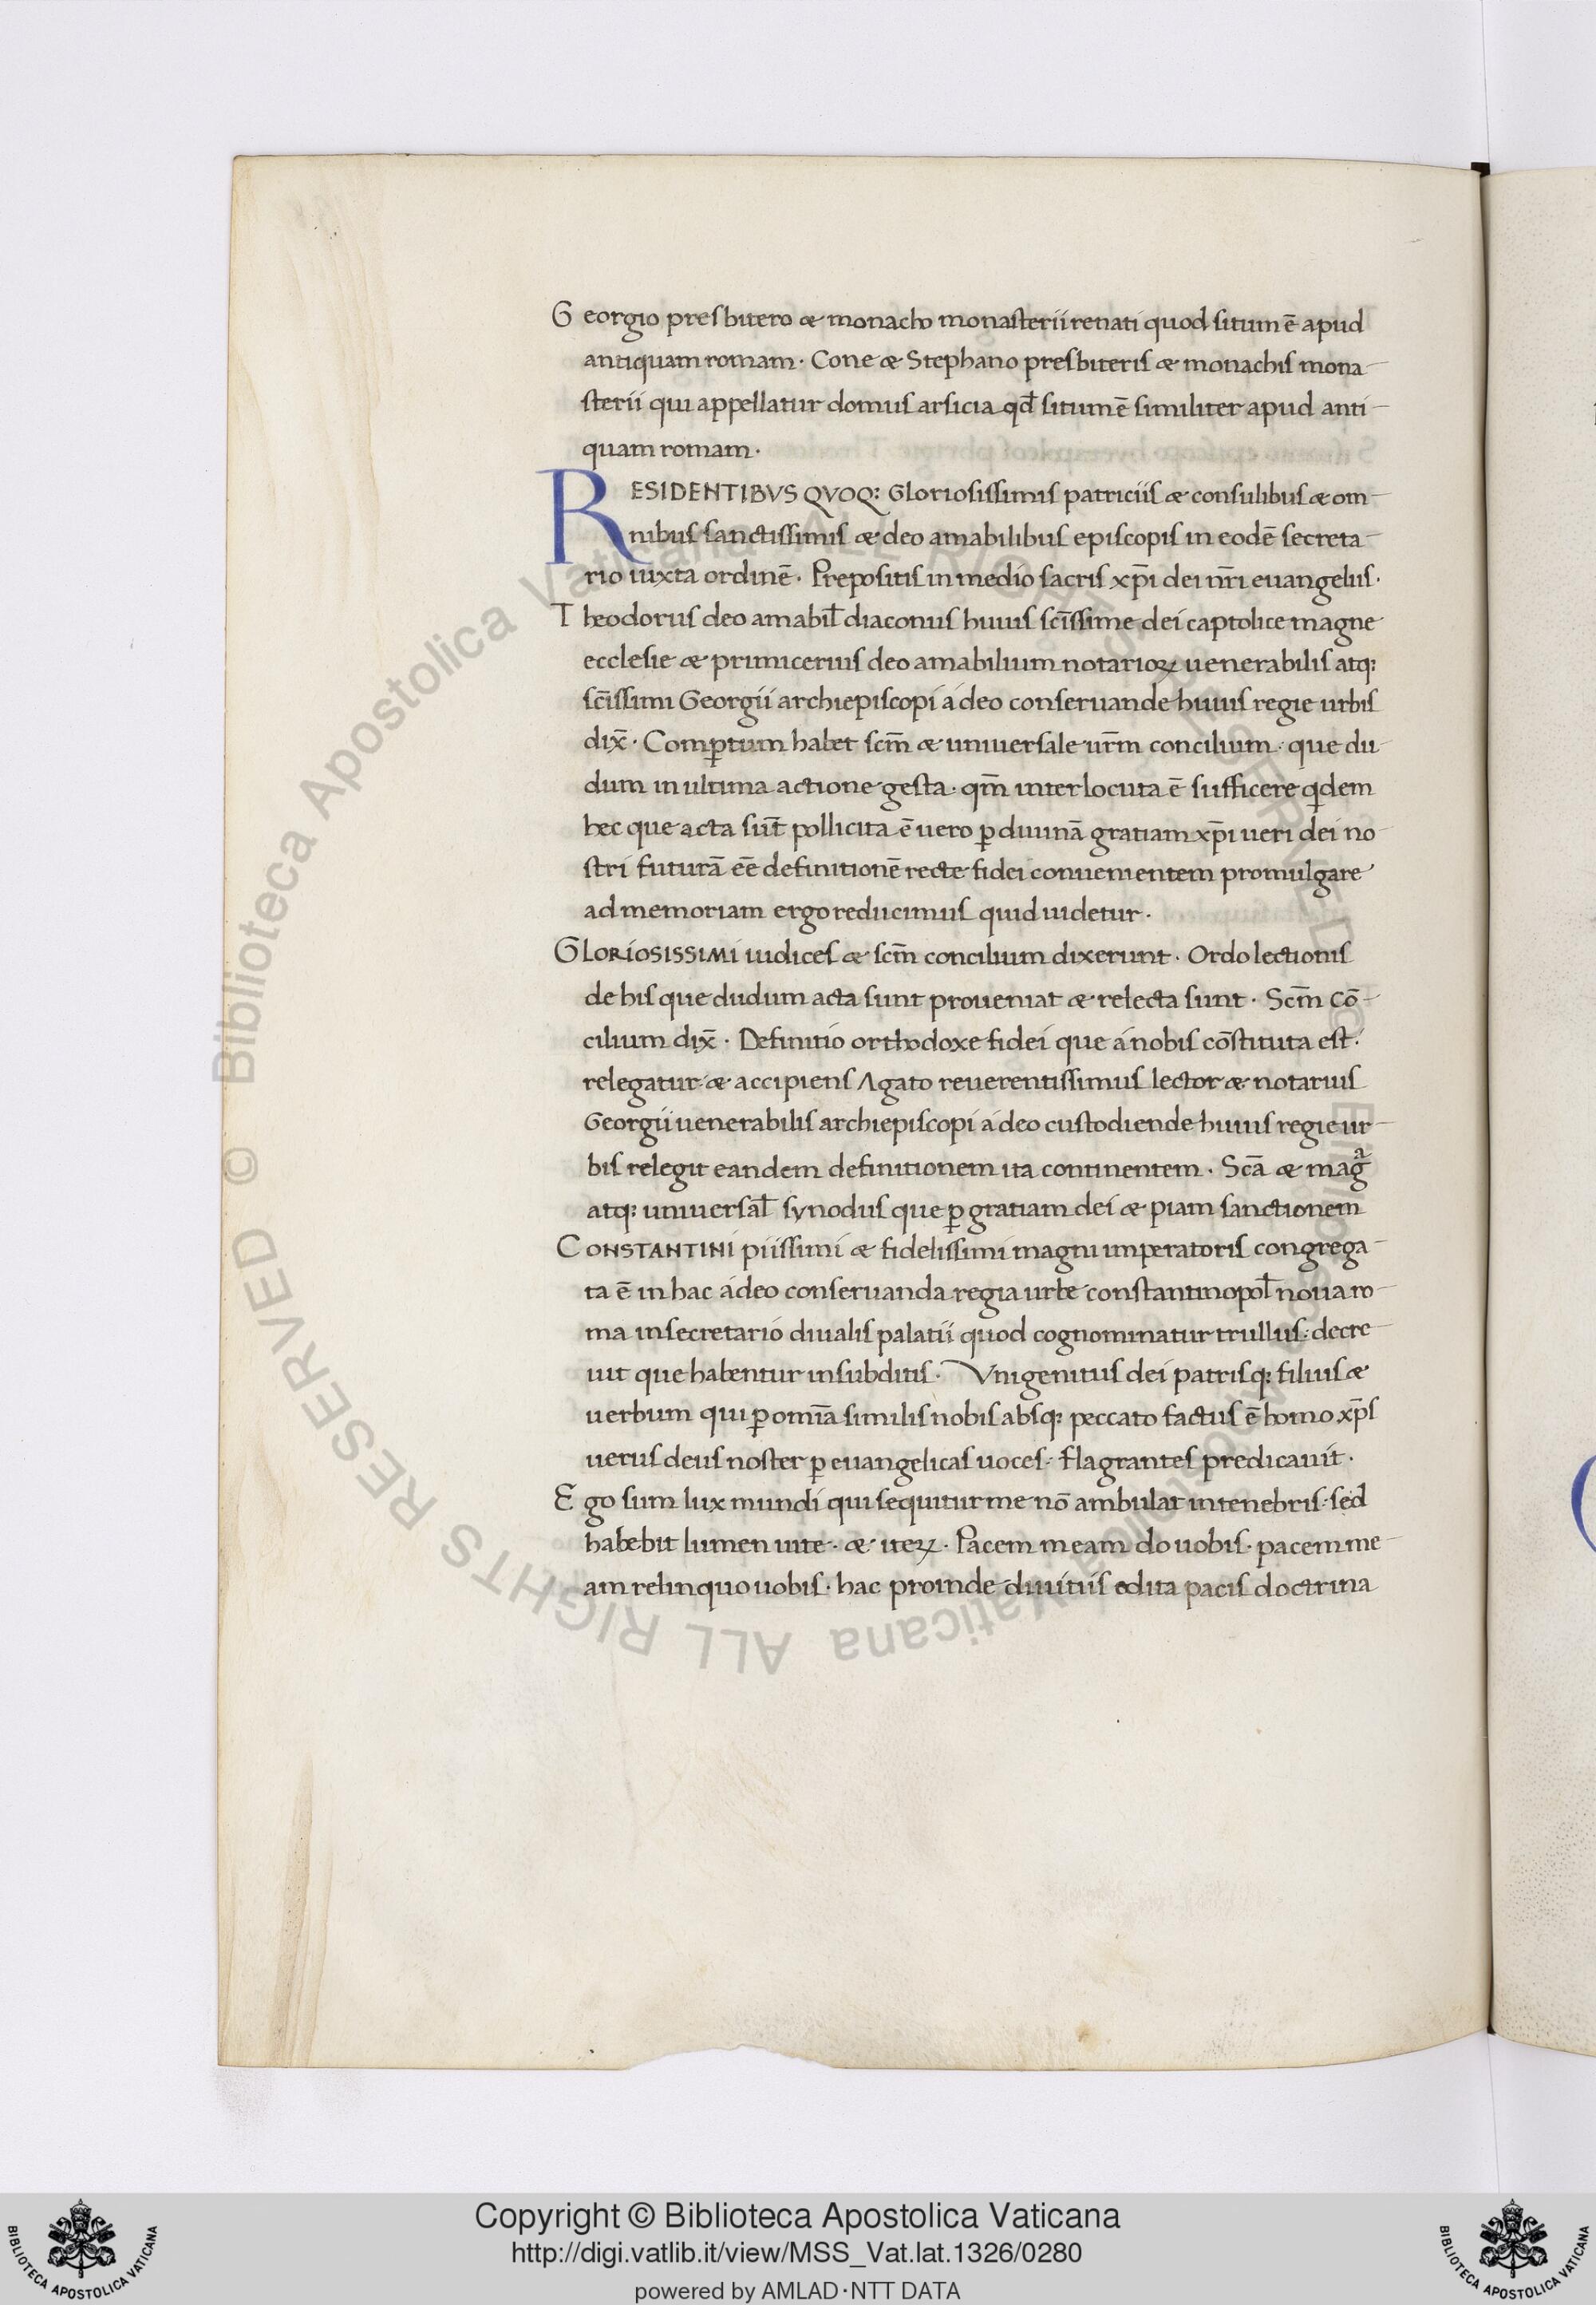 Georgio presbitero æ monacho monasterii renati quod situm ē apud
antiquam romam. Cone æ Stephano presbiteris æ monachis mona-
sterii qui appellatur domus arsicia qd̄ situm ē similiter apud anti-
quam romam.
RESIDENTIBVS QVOQ: Gloriosissimis patriciis æ consulibus æ om-
nibus sanctissimis æ deo amabilibus episcopis in eodē secreta-
rio iuxta ordinē. Prepositis in medio sacris xp̄i dei nr̄i euangeliis.
Theodorus deo amabil̄ diaconus huius sc̄issime dei captolice magne
ecclesie æ primicerius deo amabilium notarioꝝ uenerabilis atq:
sc̄issimi Georgii archiepiscopi á deo conseruande huius regie urbis
dix̄. Comꝑtum habet scm̄ æ uniuersale ur̄m concilium. que du-
dum in ultima actione gesta. qm̄ interlocuta ē sufficere qdem
hec que acta sūt pollicita ē uero ꝑ diuinā gratiam xp̄i ueri dei no-
stri futurā eē definitionē recte fidei conuenientem promulgare
ad memoriam ergo reducimus quid uidetur.
GLORIOSISSIMI iudices æ scm̄ concilium dixerunt. Ordo lectionis
de his que dudum acta sunt proueniat æ relecta sunt. Scm̄ cō-
cilium dix̄. Definitio orthodoxe fidei que á nobis cōstituta est:
relegatur æ accipiens Agato reuerentissimus lector æ notarius
Georgii uenerabilis archiepiscopi á deo custodiende huius regie ur-
bis relegit eandem definitionem ita continentem. Scā æ magͣ
atq: uniuersal̄ synodus que ꝑ gratiam dei æ piam sanctionem
CONSTANTINI piissimi æ fidelissimi magni imperatoris congrega-
ta ē in hac á deo conseruanda regia urbe constantinopol̄ noua ro-
ma in secretario diualis palatii quod cognominatur trullus: decre-
uit que habentur in subditis. Vnigenitus dei patrisq: filius æ
uerbum qui ꝑ omīa similis nobis absq: peccato factus ē homo xp̄s
uerus deus noster ꝑ euangelicas uoces. flagrantes predicauit.
Ego sum lux mundi qui sequitur me nō ambulat in tenebris: sed
habebit lumen uite. æ iteꝝ. Pacem meam do uobis. pacem me-
am relinquo uobis. hac proinde diuinitus edita pacis doctrina
Biblioteca Apostolica Vaticana ALL RIGHTS RESERVED ©
Copyright © Biblioteca Apostolica Vaticana
http://digi.vatlib.it/view/MSS_Vat.lat.1326/0280
powered by AMLAD·NTT DATA
BIBLIOTECA APOSTOLICA VATICANA
BIBLIOTECA APOSTOLICA VATICANA